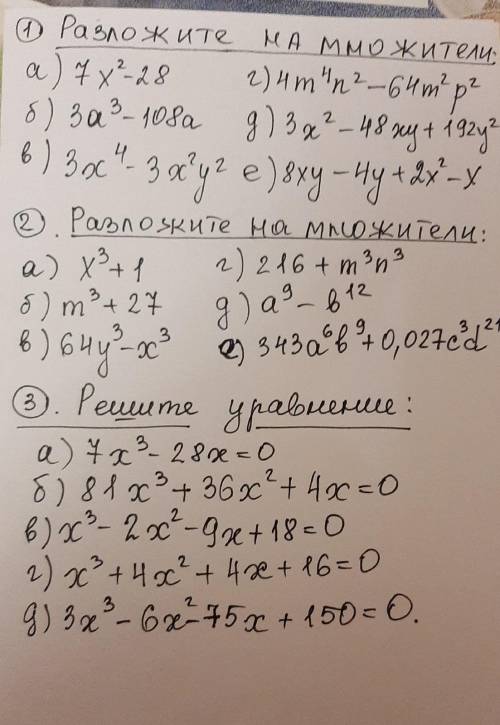 ① Разложите на множители:
а) 7x²-28 г) 4m⁴n²-64m²p²
б) 3a³-108a д) 3x²-48xy+192y²
в) 3x⁴-3x²y² е) 8xy-4y+2x²-x
② . Разложите на множители:
а) x³+1 г) 216+m³n³
б) m³+27 д) a⁹-b¹²
в) 64y³-x³ е) 343a⁶b⁹+0,027c³d²¹
③ . Решите уравнение:
а) 7x³-28x=0
б) 81x³+36x²+4x=0
в) x³-2x²-9x+18=0
г) x³+4x²+4x+16=0
д) 3x³-6x²-75x+150=0.